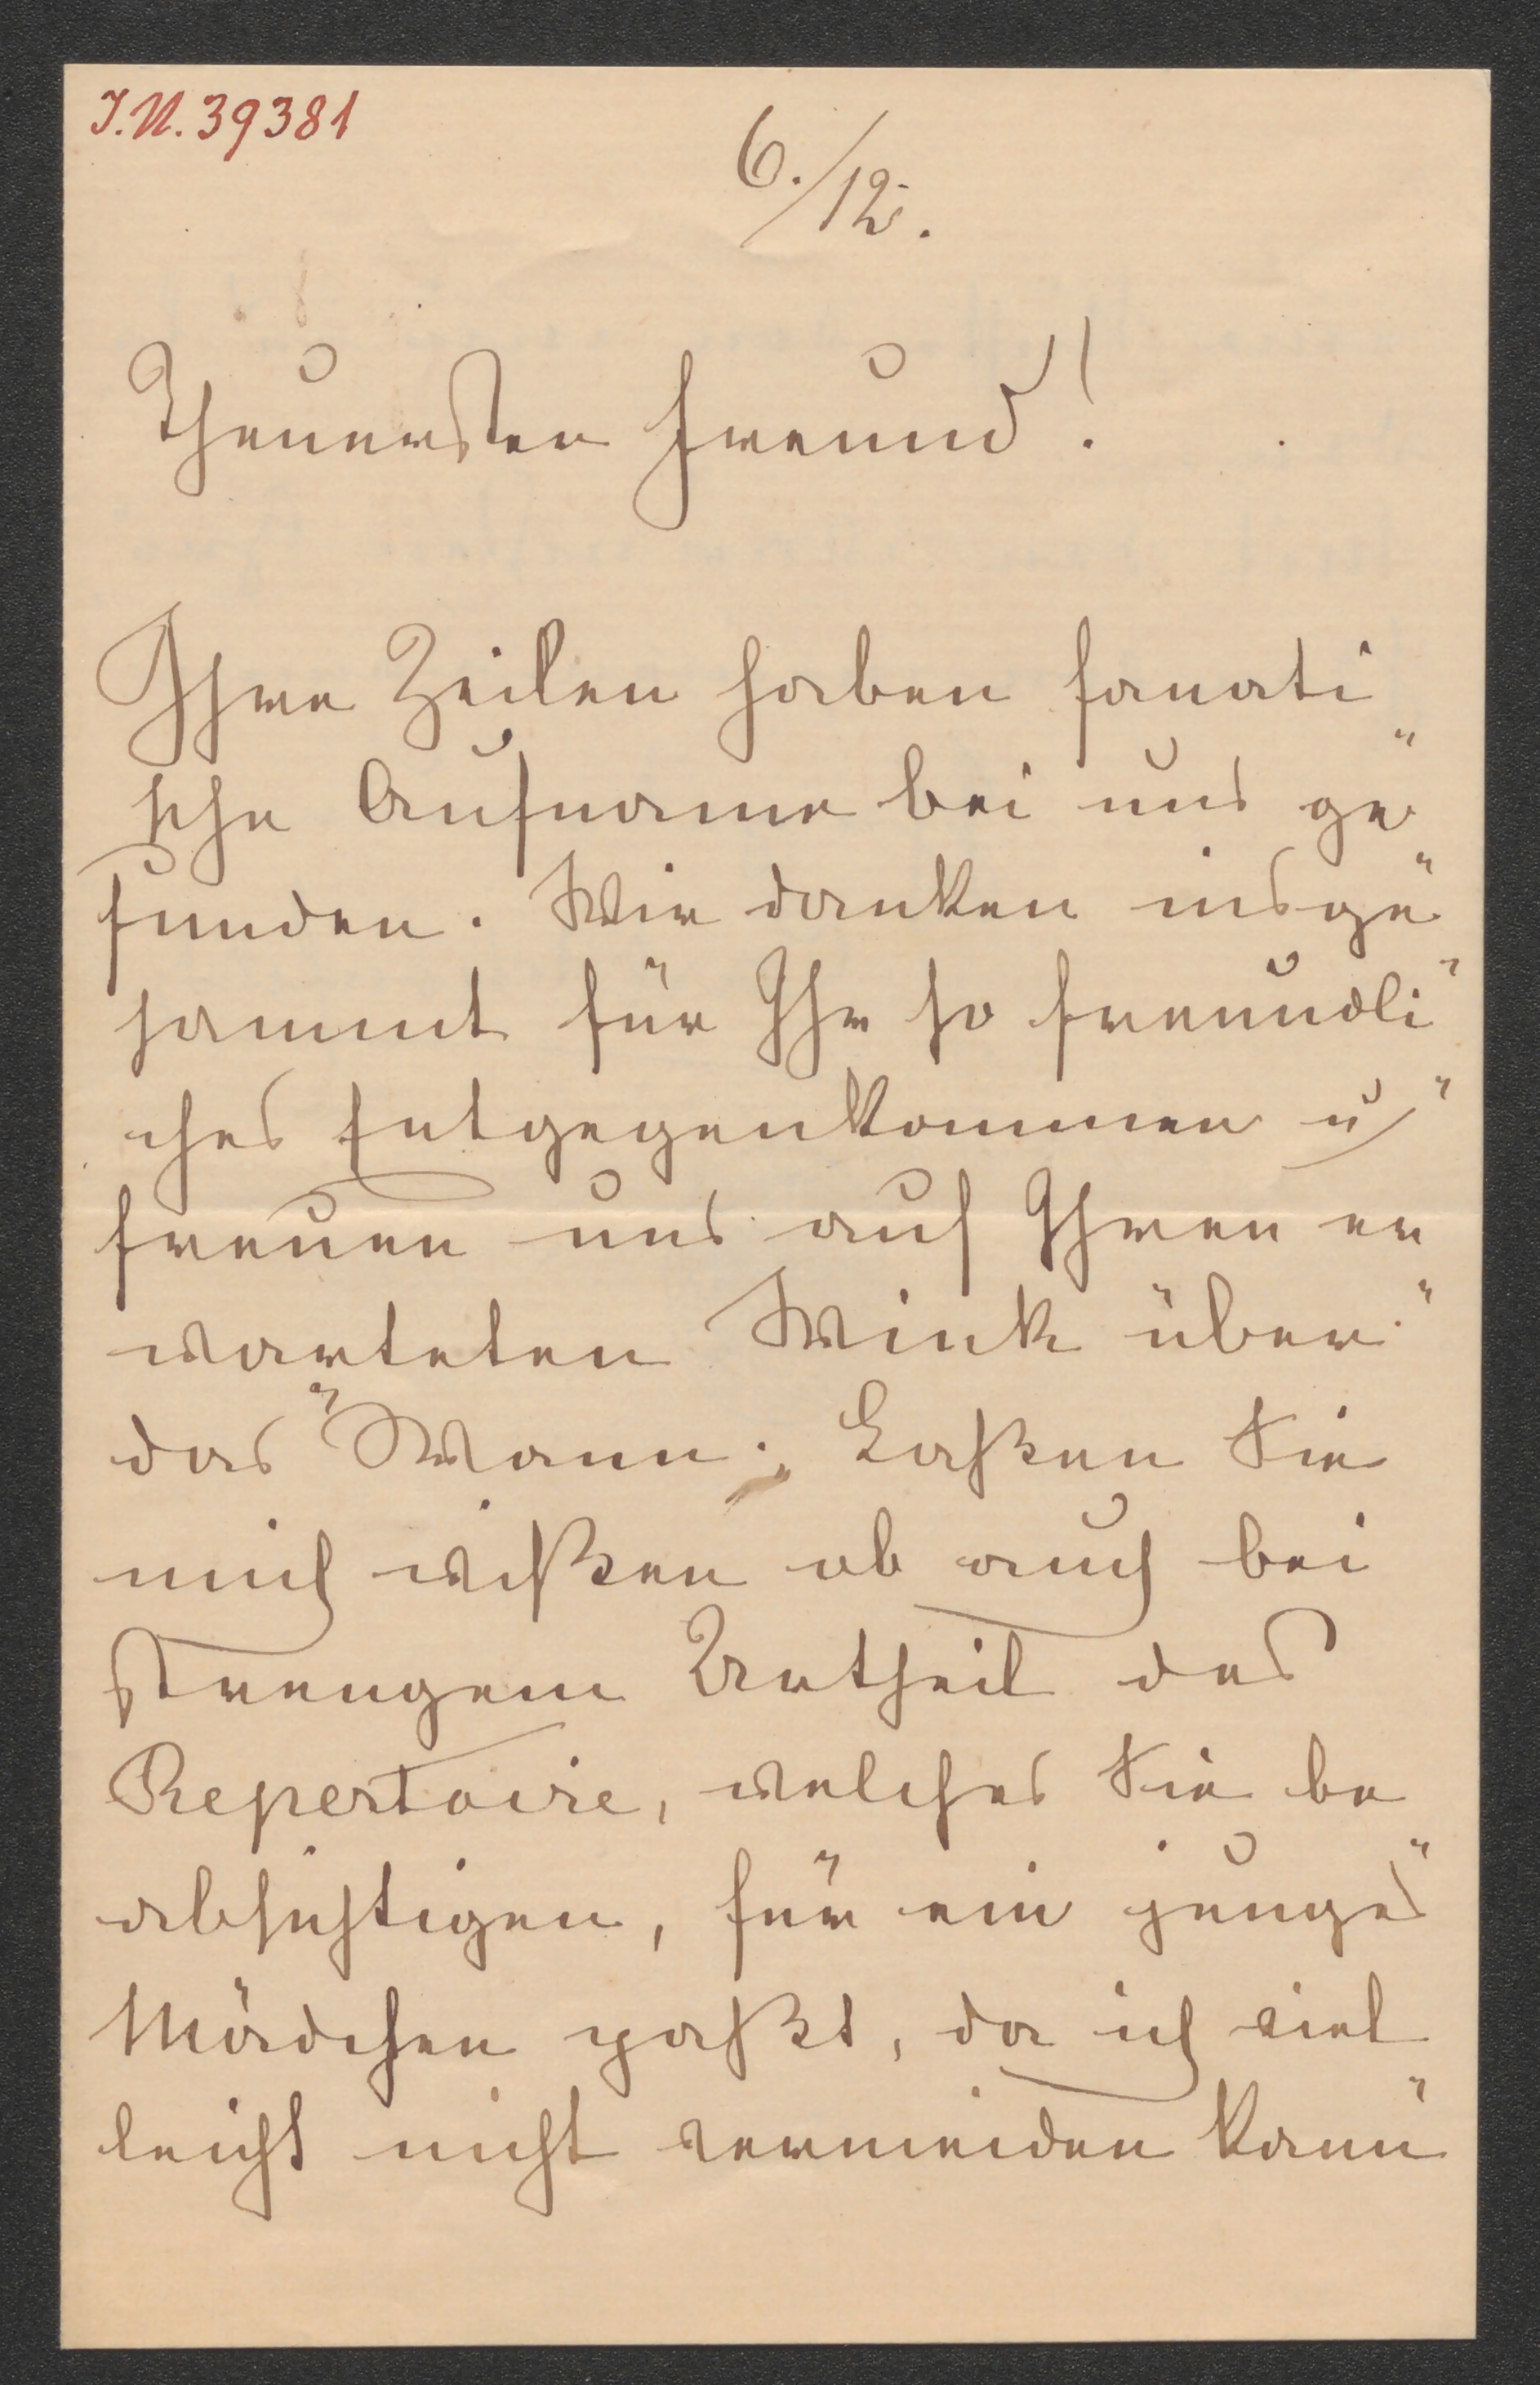 I.N. 39381
6./12.
Theuerster Freund!
Ihre Zeilen haben fanati„
sche Aufname bei uns ge„
funden. Wir danken insge„
sammt für Ihr so freundli„
ches Entgegenkommen u
freuen uns auf Ihren er„
warteten Wink über
das „Wann“. Laßen Sie
mich wißen ob auch bei
strengem Urtheil das
Repertoire, welches Sie be„
absichtigen, für ein junges
Mädchen paßt, da ich viel„
leicht nicht vermeiden kann